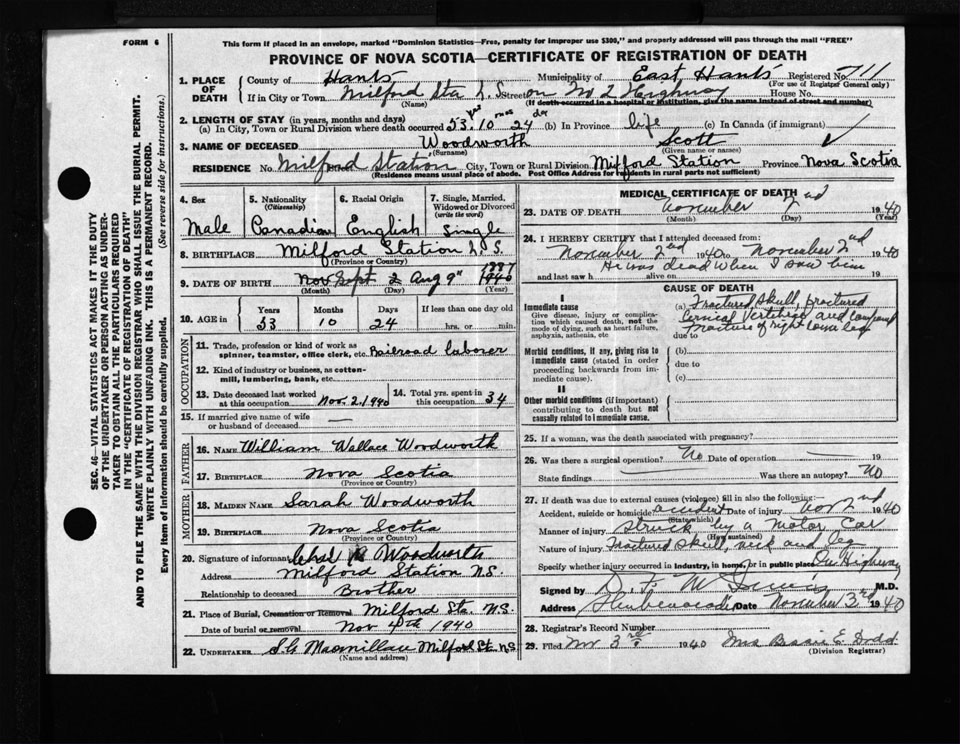 FORM 6
This form if placed in an envelope, marked "Dominion Statistics—Free, penalty for improper use $300," and properly addressed will pass through the mail "FREE"
PROVINCE OF NOVA SCOTIA—CERTIFICATE OF REGISTRATION OF DEATH
SEC. 46—VITAL STATISTICS ACT MAKES IT THE DUTY
OF THE UNDERTAKER OR PERSON ACTING AS UNDER-
TAKER TO OBTAIN ALL THE PARTICULARS REQUIRED
IN THE "CERTIFICATE OF REGISTRATION OF DEATH"
AND TO FILE THE SAME WITH THE DIVISION REGISTRAR WHO SHALL ISSUE THE BURIAL PERMIT.
WRITE PLAINLY WITH UNFADING INK. THIS IS A PERMANENT RECORD.
Every item of information should be carefully supplied. (See reverse side for instructions.)
1. PLACE OF DEATH County of Hants Municipality of East Hants Registered No. 711
(For use of Registrar General only)
If in City or Town Milford Sta N.S. Street on No 2 Highway House No.
(Name) (If death occurred in a hospital or institution, give the name instead of street and number)
2. LENGTH OF STAY (in years, months and days)
(a) In City, Town or Rural Division where death occurred 53 yrs 10 mos 24 dys (b) In Province life (c) In Canada (if immigrant)
3. NAME OF DECEASED Woodworth Scott
(Surname) (Given name or names)
RESIDENCE No. Milford Station City, Town or Rural Division Milford Station Province Nova Scotia
(Residence means usual place of abode. Post Office Address for residents in rural parts not sufficient)
4. Sex 5. Nationality (Citizenship) 6. Racial Origin 7. Single, Married, Widowed or Divorced (write the word)
Male Canadian English Single
8. BIRTHPLACE Milford Station N.S.
(Province or Country)
9. DATE OF BIRTH Nov Sept 2 Aug 9" 1887 1940
(Month) (Day) (Year)
10. AGE in Years Months Days If less than one day old
53 10 24 hrs. or min.
OCCUPATION
11. Trade, profession or kind of work as spinner, teamster, office clerk, etc. Railroad laborer
12. Kind of industry or business, as cotton-mill, lumbering, bank, etc.
13. Date deceased last worked at this occupation Nov. 2. 1940 14. Total yrs. spent in this occupation 34
15. If married give name of wife or husband of deceased —
FATHER
16. NAME William Wallace Woodworth
17. BIRTHPLACE Nova Scotia
(Province or Country)
MOTHER
18. MAIDEN NAME Sarah Woodworth
19. BIRTHPLACE Nova Scotia
(Province or Country)
20. Signature of informant Woodworth
Address Milford Station N.S.
Relationship to deceased Brother
21. Place of Burial, Cremation or Removal Milford Sta. N.S.
Date of burial or removal Nov 4th 1940
22. UNDERTAKER S.G. Macmillan Milford Sta. N.S.
(Name and address)
MEDICAL CERTIFICATE OF DEATH
23. DATE OF DEATH November 2nd 1940
(Month) (Day) (Year)
24. I HEREBY CERTIFY that I attended deceased from:
November 2nd 1940 to November 2nd 1940
He was dead when I saw him
and last saw h alive on 19
CAUSE OF DEATH
I
Immediate cause
Give disease, injury or complication which caused death, not the mode of dying, such as heart failure, asphyxia, asthenia, etc
(a) Fractured skull, fractured
Cervical Vertebra and compound
fracture of right lower leg
due to
Morbid conditions, if any, giving rise to immediate cause (stated in order proceeding backwards from immediate cause).
(b)
due to
(c)
II
Other morbid conditions (if important) contributing to death but not causally related to immediate cause.
25. If a woman, was the death associated with pregnancy?
26. Was there a surgical operation? No Date of operation — 19
State findings Was there an autopsy? No
27. If death was due to external causes (violence) fill in also the following:
Accident, suicide or homicide accident Date of injury Nov 2nd 1940
(State which)
Manner of injury struck by a motor car
(How sustained)
Nature of injury Fractured skull, neck and leg
Specify whether injury occurred in industry, in home, or in public place On Highway
Signed by M.D.
Address Shubenacadie Date November 3rd 1940
28. Registrar's Record Number
29. Filed Nov 3rd 1940 Mrs Bessie E. Dodd
(Division Registrar)